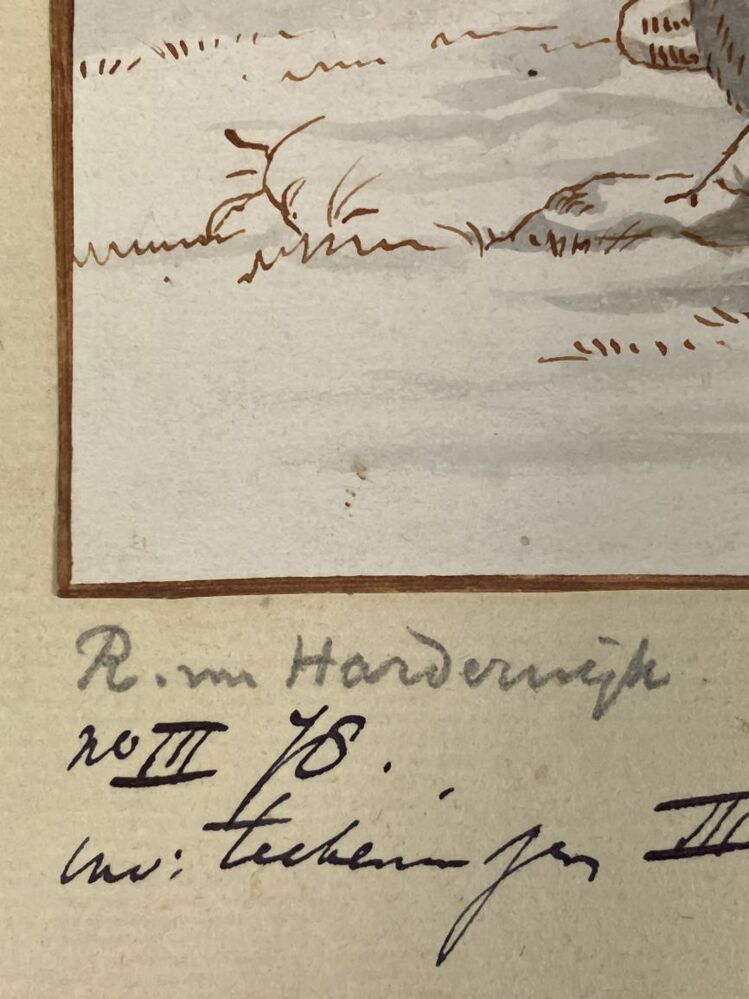 R. van Harderwijk
no III 78.
inv: teekeningen III